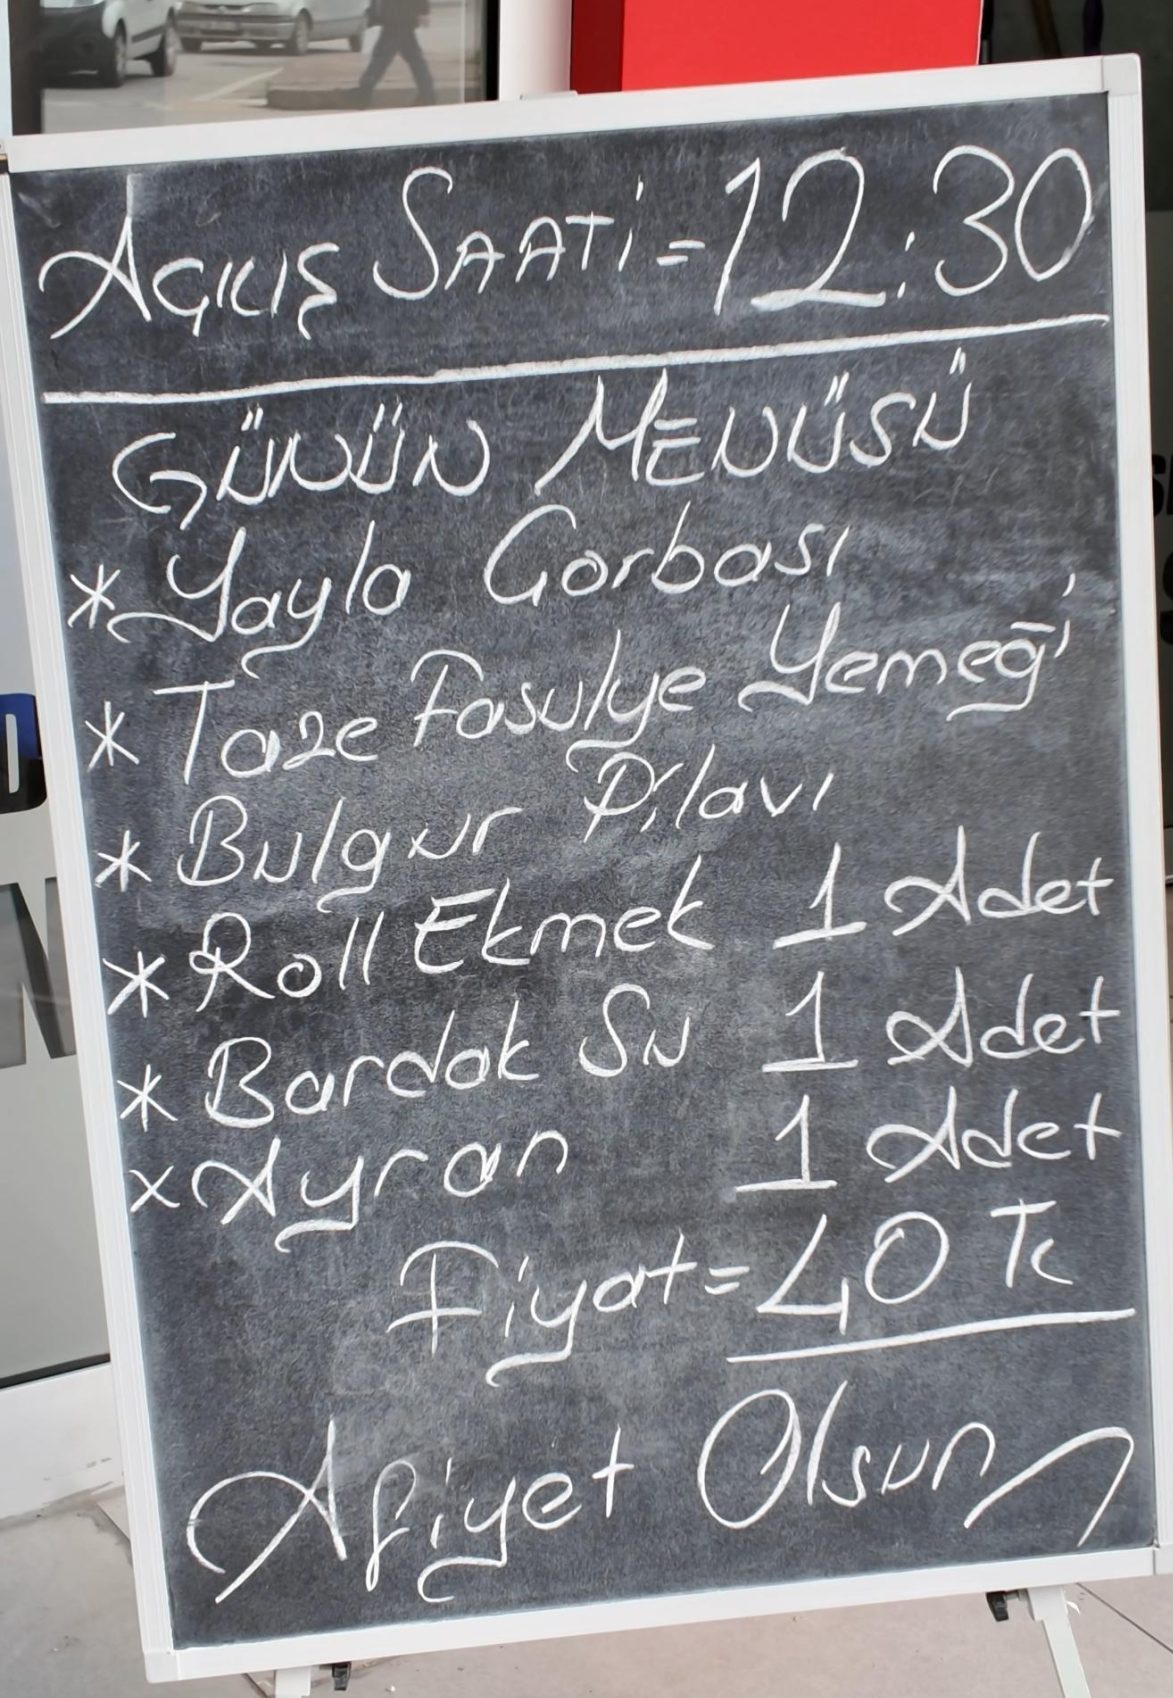 AÇILIŞ SAATİ = 12:30
GÜNÜN MENÜSÜ
* Yayla Çorbası
* Taze Fasulye Yemeği
* Bulgur Pilavı
* Roll Ekmek 1 Adet
* Bardak Su 1 Adet
× Ayran 1 Adet
Fiyat = 40 TL
Afiyet Olsun